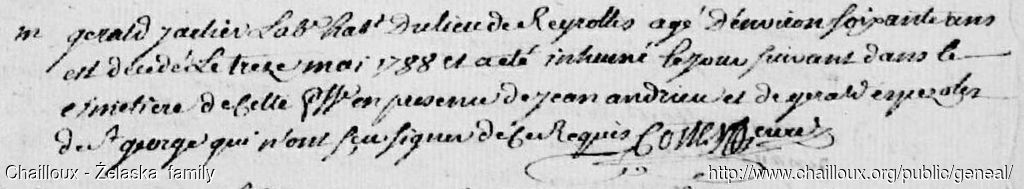 m gerald jartier Labr habt Du lieu de Reyrolles agé D'environ soixante ans
est decédé Le treze mai 1788 et a eté inhumé le jour suivant dans le
cimetiere de Cette psse en presence de jean andrieu et de gerald
de st george qui n'ont sçu signer de Ce Requis curé
Chailloux - Żelaska family
http://www.chailloux.org/public/geneal/